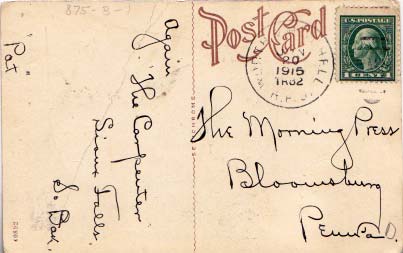 875-B-1
Post Card
Again
The Carpenter
Sioux Falls,
So Dak,
Pat
20
1915
TR82
R.P.O.
U.S. POSTAGE
1 CENT 1
The Morning Press
Bloomsburg
Penna